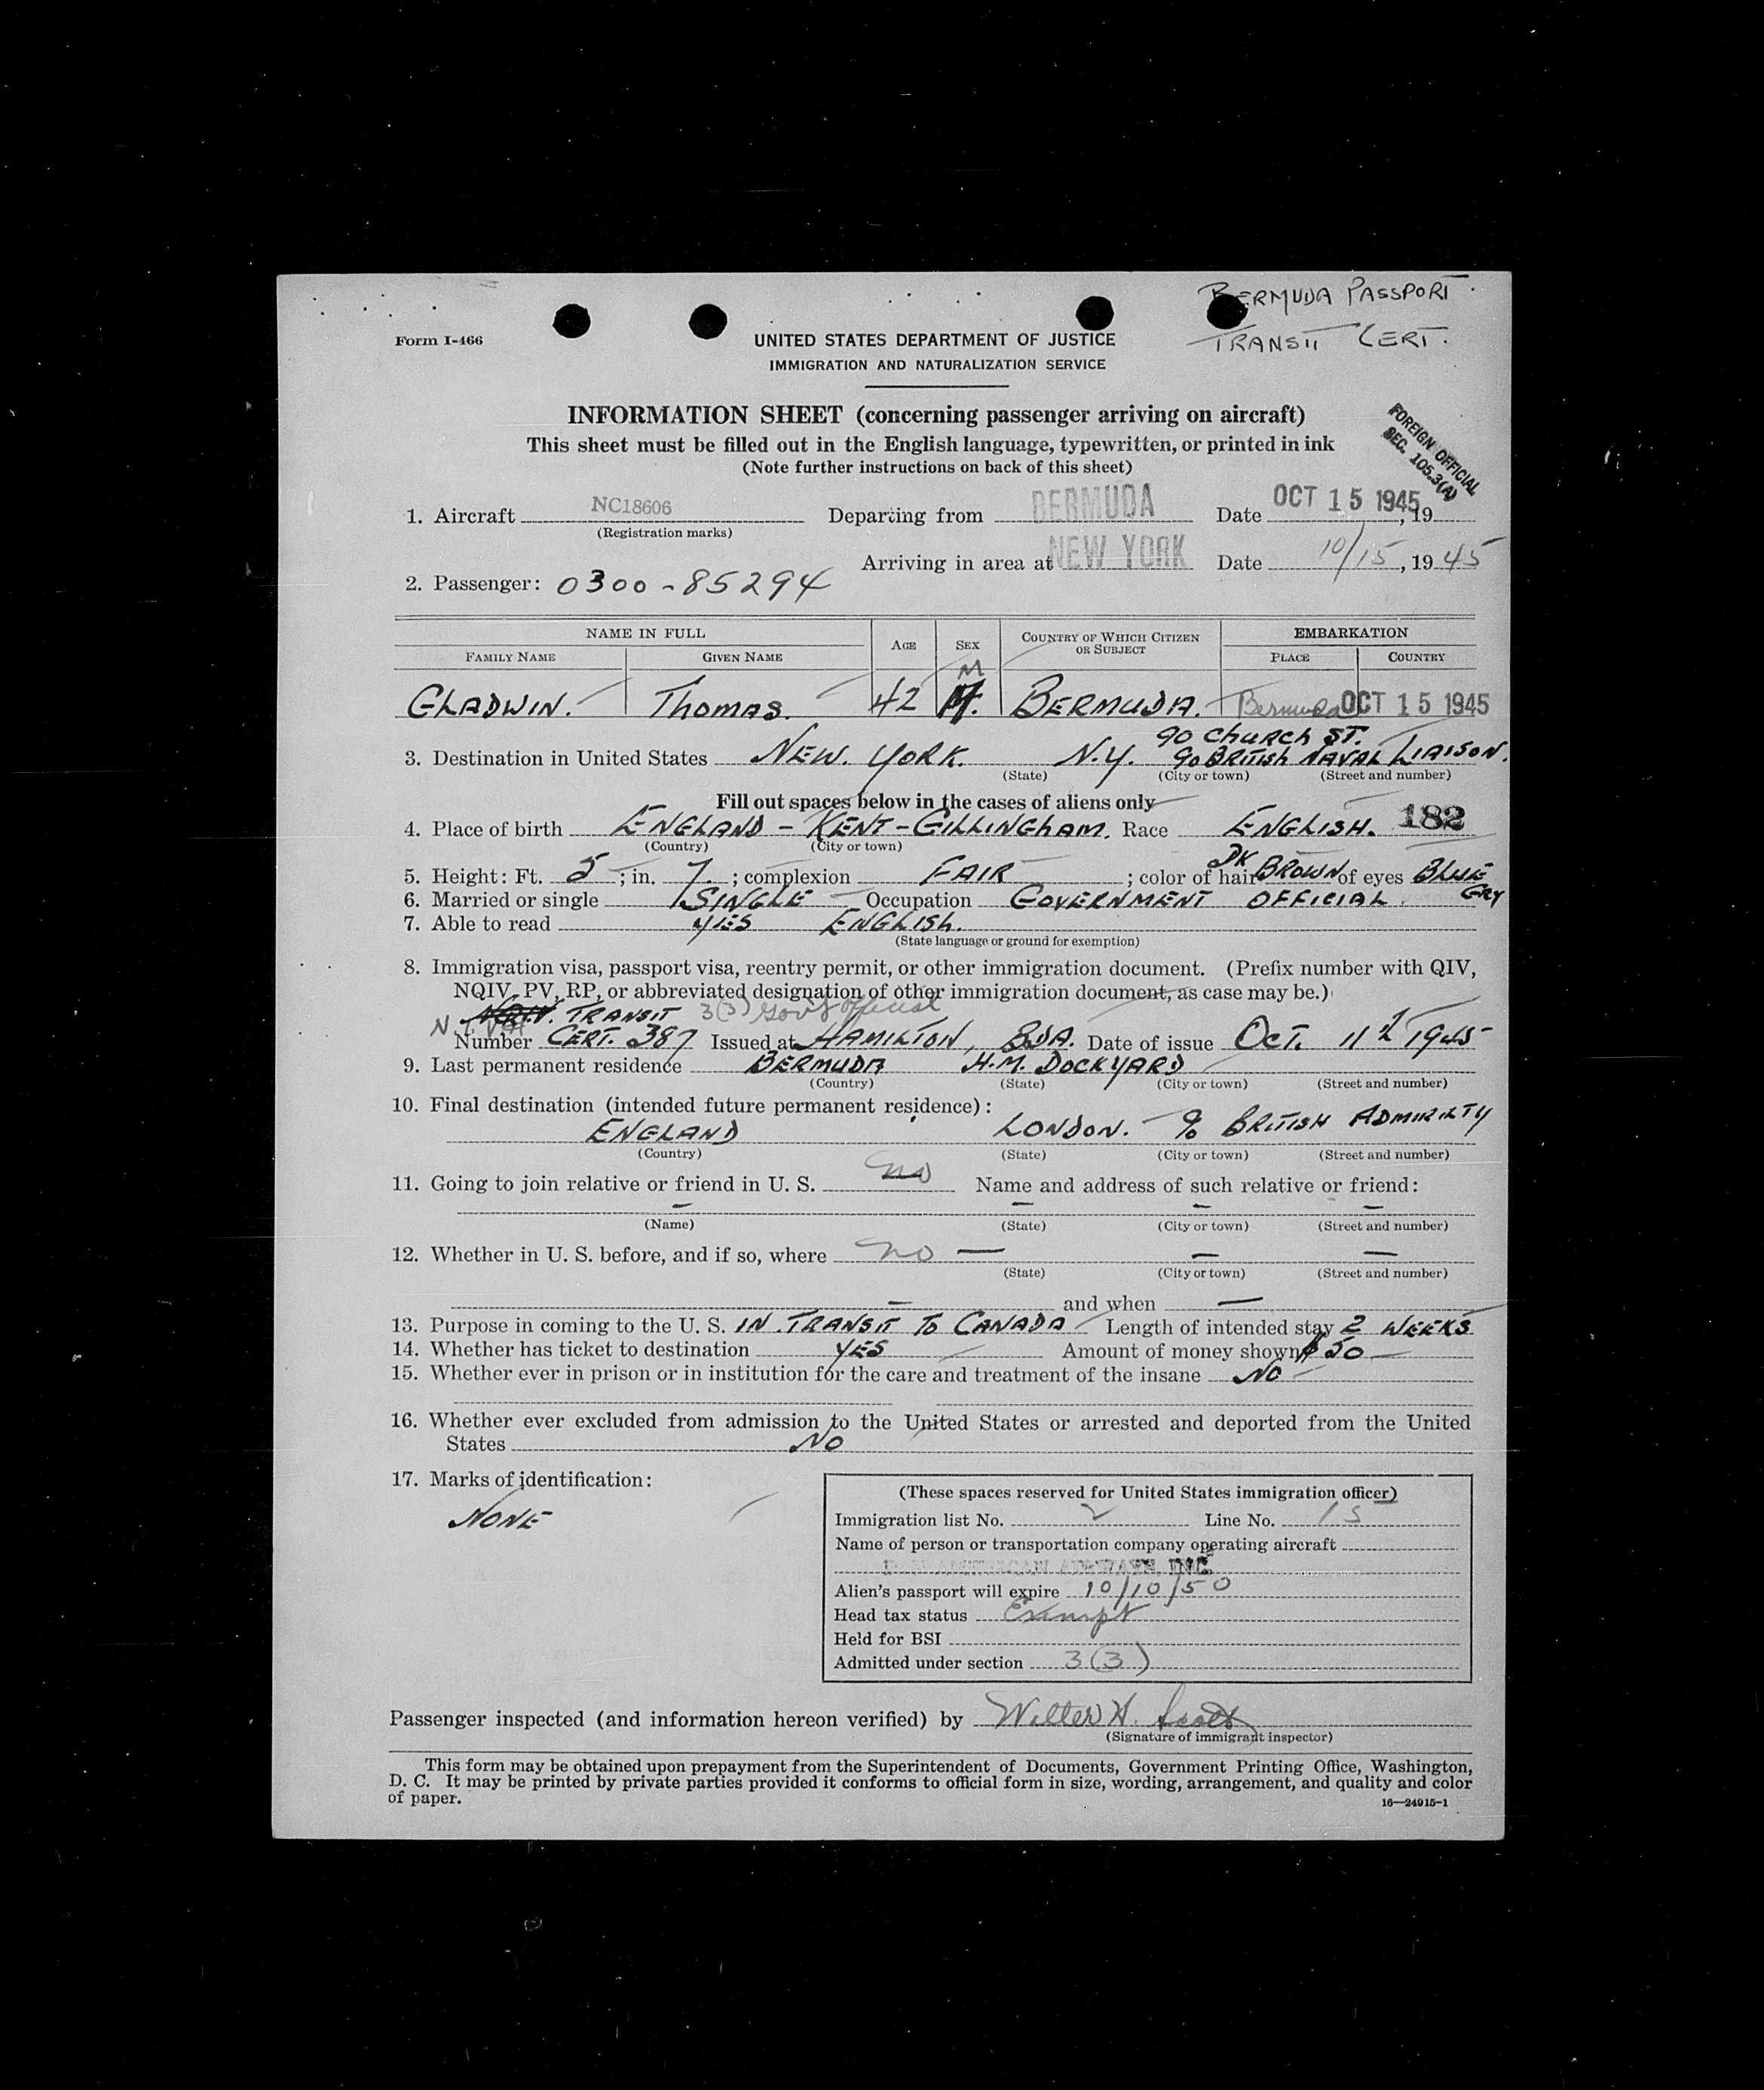 BERMUDA PASSPORT
TRANSIT CERT.
Form I-466
UNITED STATES DEPARTMENT OF JUSTICE
IMMIGRATION AND NATURALIZATION SERVICE
INFORMATION SHEET (concerning passenger arriving on aircraft)
This sheet must be filled out in the English language, typewritten, or printed in ink
(Note further instructions on back of this sheet)
FOREIGN OFFICIAL
SEC. 105.3(A)
1. Aircraft NC18606 Departing from BERMUDA Date OCT 15 1945, 19
(Registration marks)
Arriving in area at NEW YORK Date 10/15, 1945
2. Passenger: 0300-85294
NAME IN FULL AGE SEX COUNTRY OF WHICH CITIZEN OR SUBJECT EMBARKATION
FAMILY NAME GIVEN NAME PLACE COUNTRY
M
GLADWIN. THOMAS. 42 M. BERMUDA. Bermuda OCT 15 1945
90 CHURCH ST.
3. Destination in United States NEW. YORK. N.Y. % BRITISH NAVAL LIAISON.
(State) (City or town) (Street and number)
Fill out spaces below in the cases of aliens only
4. Place of birth ENGLAND - KENT - GILLINGHAM. Race ENGLISH. 182
(Country) (City or town)
5. Height: Ft. 5; in. 7.; complexion FAIR; color of hair DK BROWN of eyes BLUE
6. Married or single SINGLE Occupation GOVERNMENT OFFICIAL. GRY
7. Able to read YES ENGLISH.
(State language or ground for exemption)
8. Immigration visa, passport visa, reentry permit, or other immigration document. (Prefix number with QIV,
NQIV, PV, RP, or abbreviated designation of other immigration document, as case may be.)
TRANSIT 3(3) Gov't Official
Number CERT. 387 Issued at HAMILTON, BDA. Date of issue OCT. 11th 1945
9. Last permanent residence BERMUDA H.M. DOCKYARD
(Country) (State) (City or town) (Street and number)
10. Final destination (intended future permanent residence):
ENGLAND LONDON. - % BRITISH ADMIRILTY
(Country) (State) (City or town) (Street and number)
11. Going to join relative or friend in U. S. no Name and address of such relative or friend:
(Name) (State) (City or town) (Street and number)
12. Whether in U. S. before, and if so, where no —
(State) (City or town) (Street and number)
and when —
13. Purpose in coming to the U. S. IN TRANSIT TO CANADA Length of intended stay 2 WEEKS
14. Whether has ticket to destination YES Amount of money shown $50
15. Whether ever in prison or in institution for the care and treatment of the insane NO
16. Whether ever excluded from admission to the United States or arrested and deported from the United
States NO
17. Marks of identification:
NONE
(These spaces reserved for United States immigration officer)
Immigration list No. 2 Line No. 15
Name of person or transportation company operating aircraft
PAN AMERICAN AIRWAYS, INC.
Alien's passport will expire 10/10/50
Head tax status Exempt
Held for BSI
Admitted under section 3(3)
Passenger inspected (and information hereon verified) by Walter H. Scott
(Signature of immigrant inspector)
This form may be obtained upon prepayment from the Superintendent of Documents, Government Printing Office, Washington,
D. C. It may be printed by private parties provided it conforms to official form in size, wording, arrangement, and quality and color
of paper.
16—24915-1